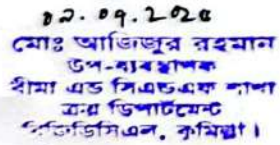 মোঃ আজিজুর রহমান
উপ-ব্যবস্থাপক
বীমা এন্ড সিএন্ডএফ শাখা
ক্রয় ডিপার্টমেন্ট
বিজিডিসিএল, কুমিল্লা।